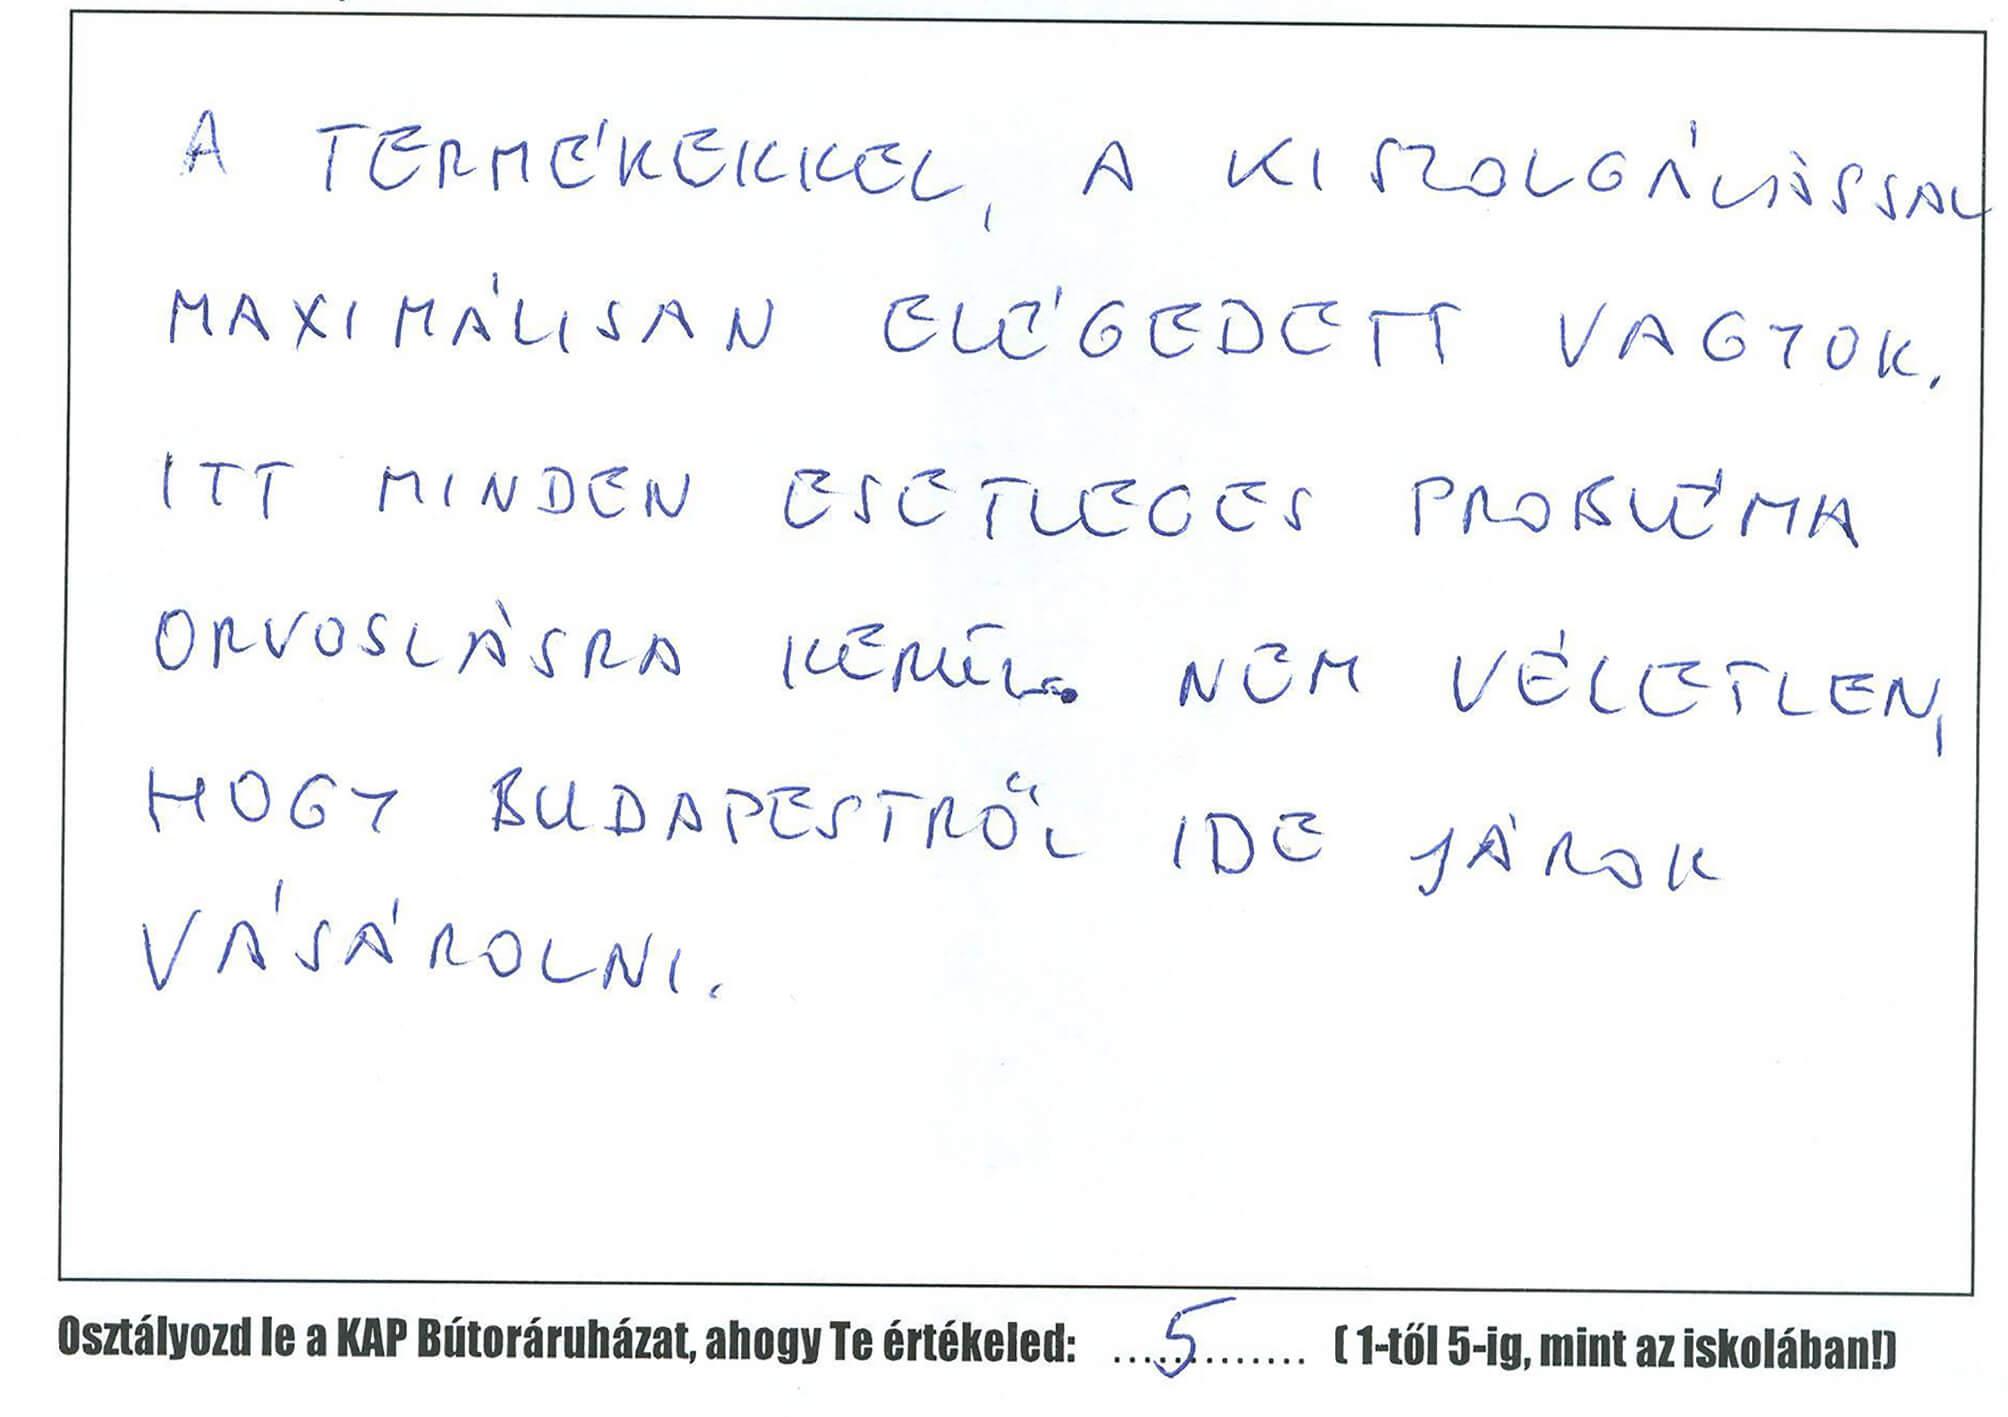 A TERMÉKEKKEL, A KISZOLGÁLÁSSAL
MAXIMÁLISAN ELÉGEDETT VAGYOK.
ITT MINDEN ESETLEGES PROBLÉMA
ORVOSLÁSRA KERÜL. NEM VÉLETLEN,
HOGY BUDAPESTRŐL IDE JÁROK
VÁSÁROLNI.
Osztályozd le a KAP Bútoráruházat, ahogy Te értékeled: ...5.......... (1-től 5-ig, mint az iskolában!)